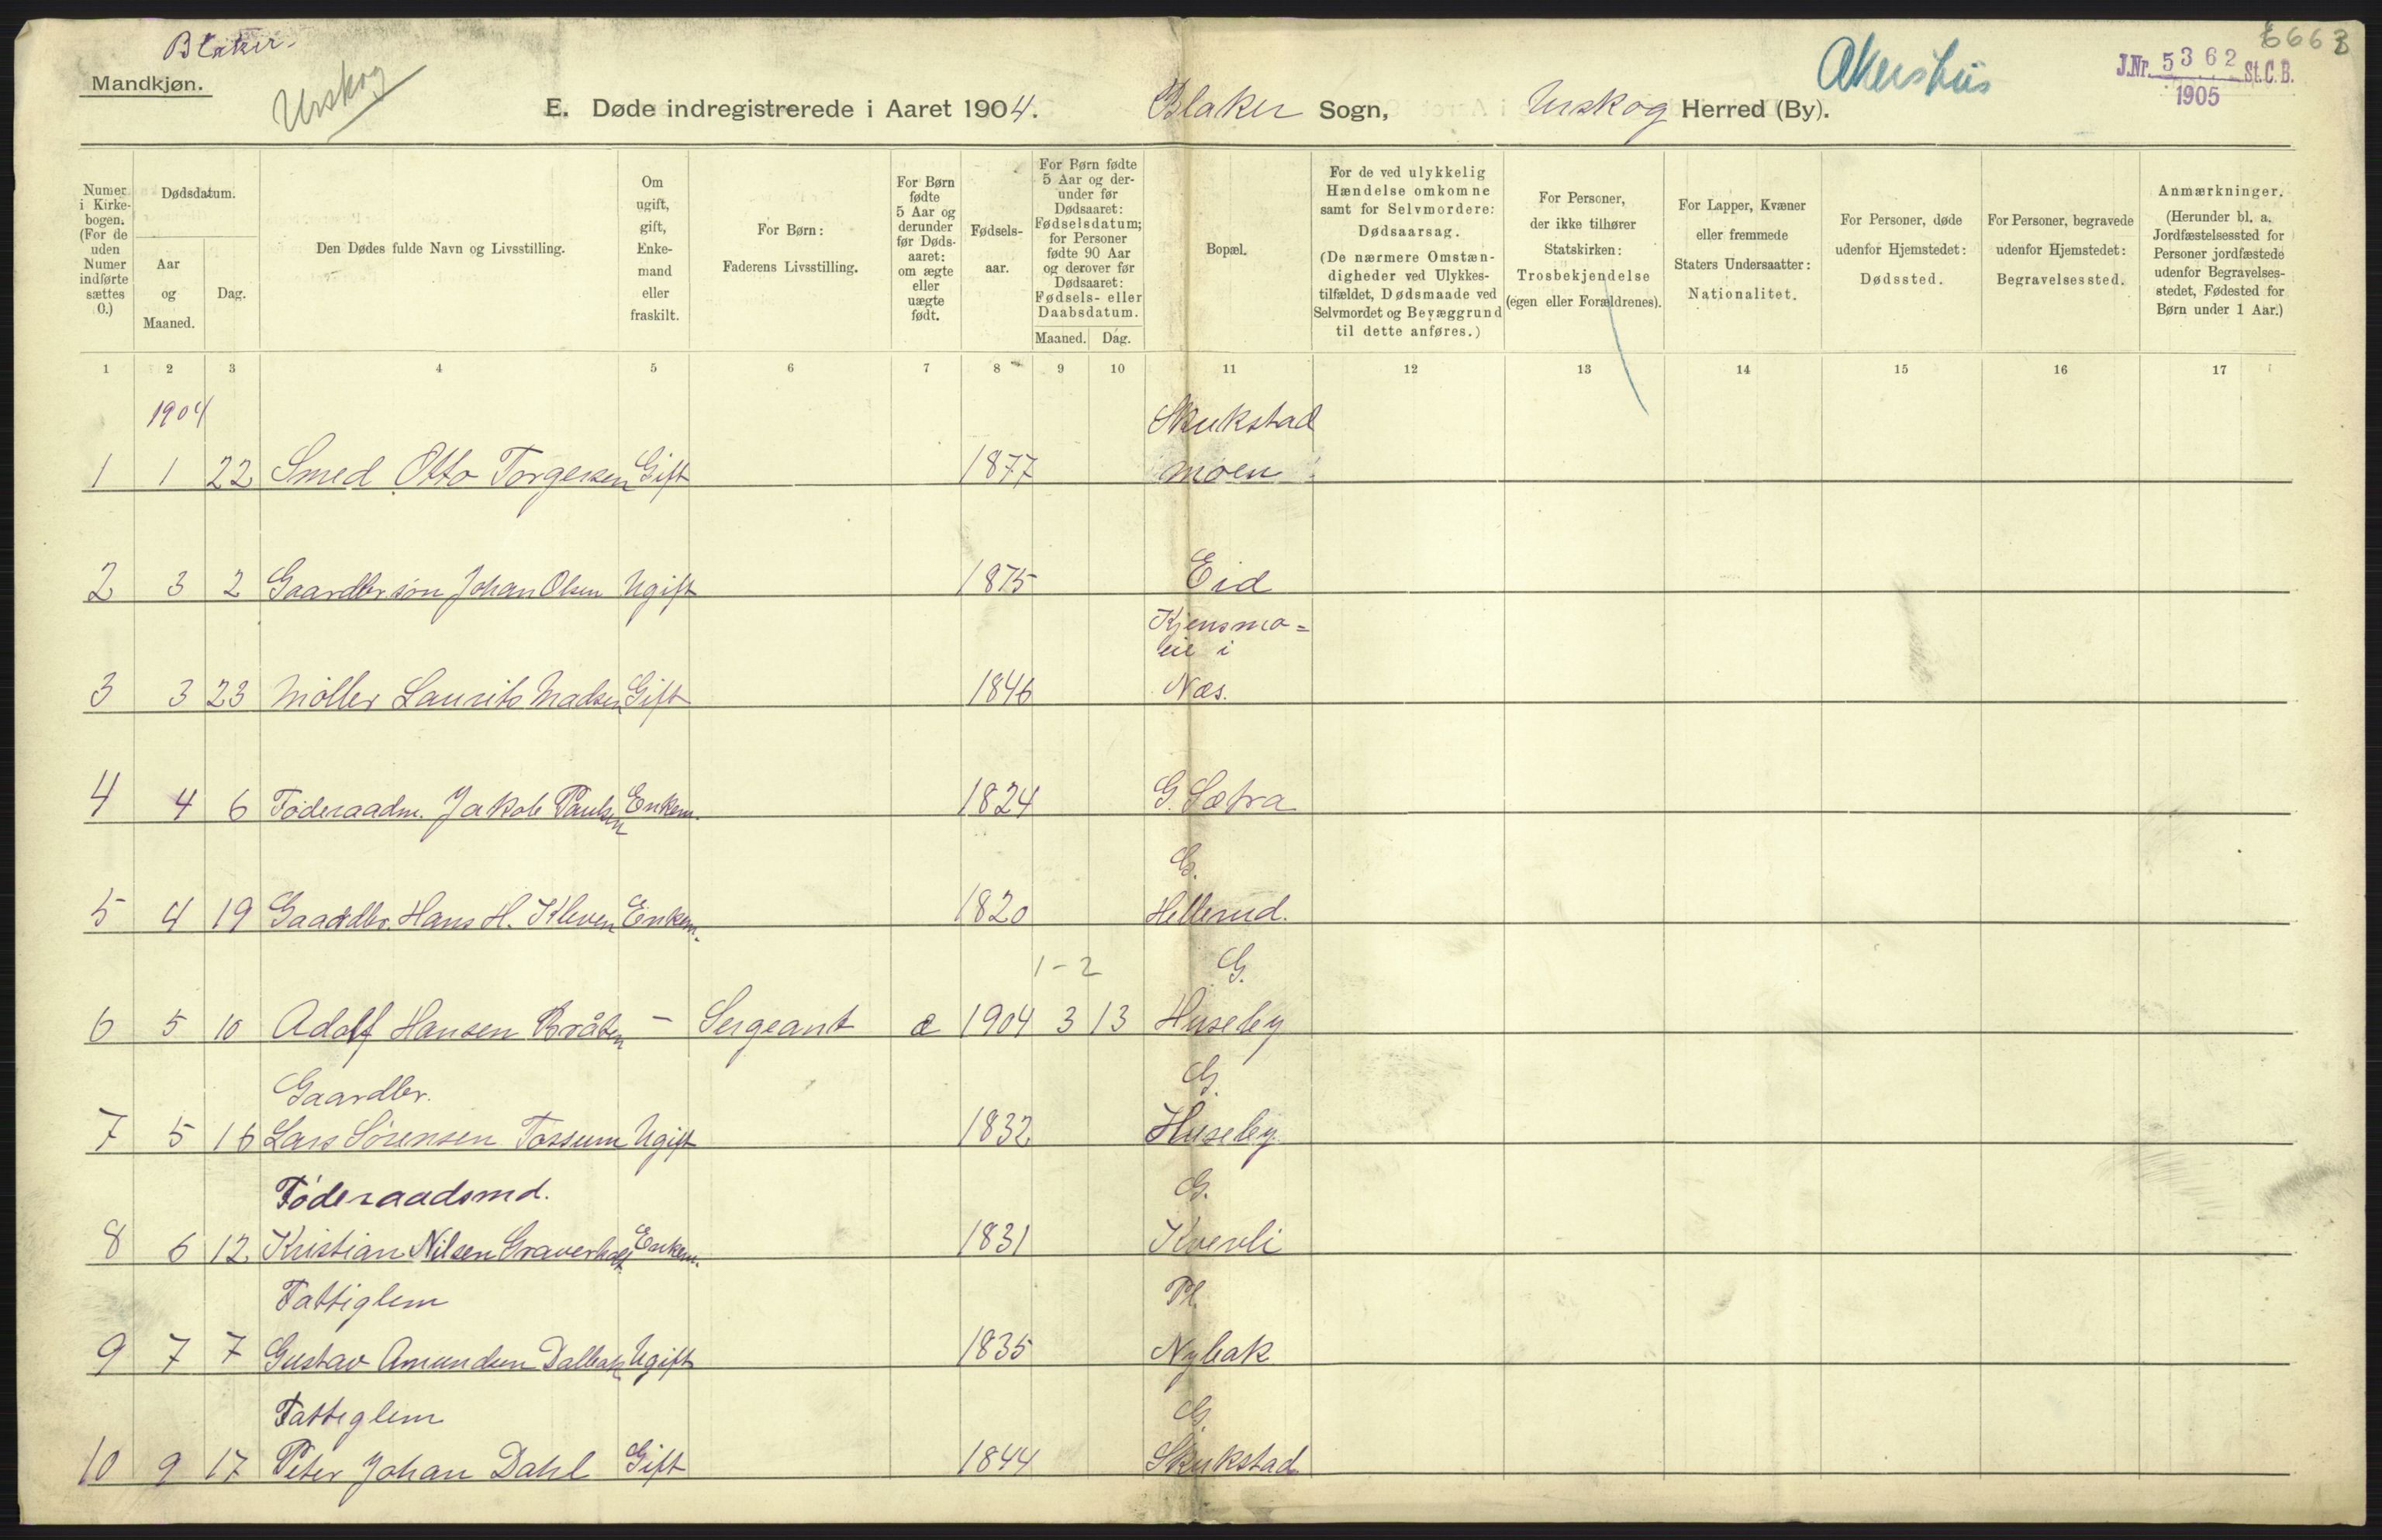 Blaker.
Mandkjøn.
Urskog
Akershus
6663
J.Nr. 5362 St.C.B.
1905
E. Døde indregistrerede i Aaret 1904. Blaker Sogn, Urskog Herred (By).
Numer i Kirkebogen. (For de uden Numer indførte sættes 0.)
Dødsdatum.
Aar og Maaned.
Dag.
Den Dødes fulde Navn og Livsstilling.
Om ugift, gift, Enkemand eller fraskilt.
For Børn: Faderens Livsstilling.
For Børn fødte 5 Aar og derunder før Dødsaaret: om ægte eller uægte født.
Fødselsaar.
For Børn fødte 5 Aar og derunder før Dødsaaret: Fødselsdatum; for Personer fødte 90 Aar og derover før Dødsaaret: Fødsels- eller Daabsdatum.
Maaned. Dag.
Bopæl.
For de ved ulykkelig Hændelse omkomne samt for Selvmordere: Dødsaarsag. (De nærmere Omstændigheder ved Ulykkestilfældet, Dødsmaade ved Selvmordet og Bevæggrund til dette anføres.)
For Personer, der ikke tilhører Statskirken: Trosbekjendelse (egen eller Forældrenes).
For Lapper, Kvæner eller fremmede Staters Undersaatter: Nationalitet.
For Personer, døde udenfor Hjemstedet: Dødssted.
For Personer, begravede udenfor Hjemstedet: Begravelsessted.
Anmærkninger. (Herunder bl. a. Jordfæstelsessted for Personer jordfæstede udenfor Begravelsesstedet, Fødested for Børn under 1 Aar.)
1 2 3 4 5 6 7 8 9 10 11 12 13 14 15 16 17
1904 Skukstad
1 1 22 Smed Otto Torgersen Gift 1877 moen
2 3 2 Gaardbr søn Johan Olsen Ugift 1875 Eid
Kjensmo=
eie i
3 3 23 Møller Laurits Madsen Gift 1846 Næs.
4 4 6 Føderaadm. Jakob Paulsen Enkem. 1824 G. Sætra
G.
5 4 19 Gaardbr. Hans H. Kleven Enkem. 1820 Hellerud.
1-2 G.
6 5 10 Adolf Hansen Bråten - Sergeant æ 1904 3 13 Huseby
Gaardbr. G.
7 5 16 Lars Sørensen Tossum Ugift 1832 Huseby
Føderaadsmd. G.
8 6 12 Kristian Nilsen Enkem. 1831 Kvevli
Fattiglem Pl.
9 7 7 Gustav Amundsen Dalbak Ugift 1835 Nybak
Fattiglem G.
10 9 17 Peter Johan Dahl Gift 1844 Skukstad